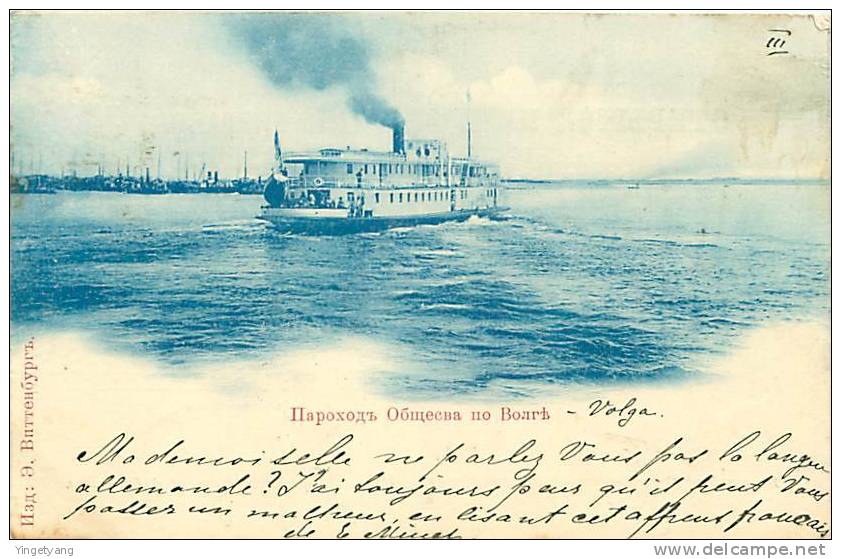 III
Пароходъ Общесва по Волгѣ - Volga.
Изд: Э. Виттенбургъ.
Mademoiselle ne parlez Vous pas la langue
allemande? J'ai toujours peur qu'il peut Vous
passer un malheur, en lisant cet affreus français
de E
Yingetyang
www.delcampe.net